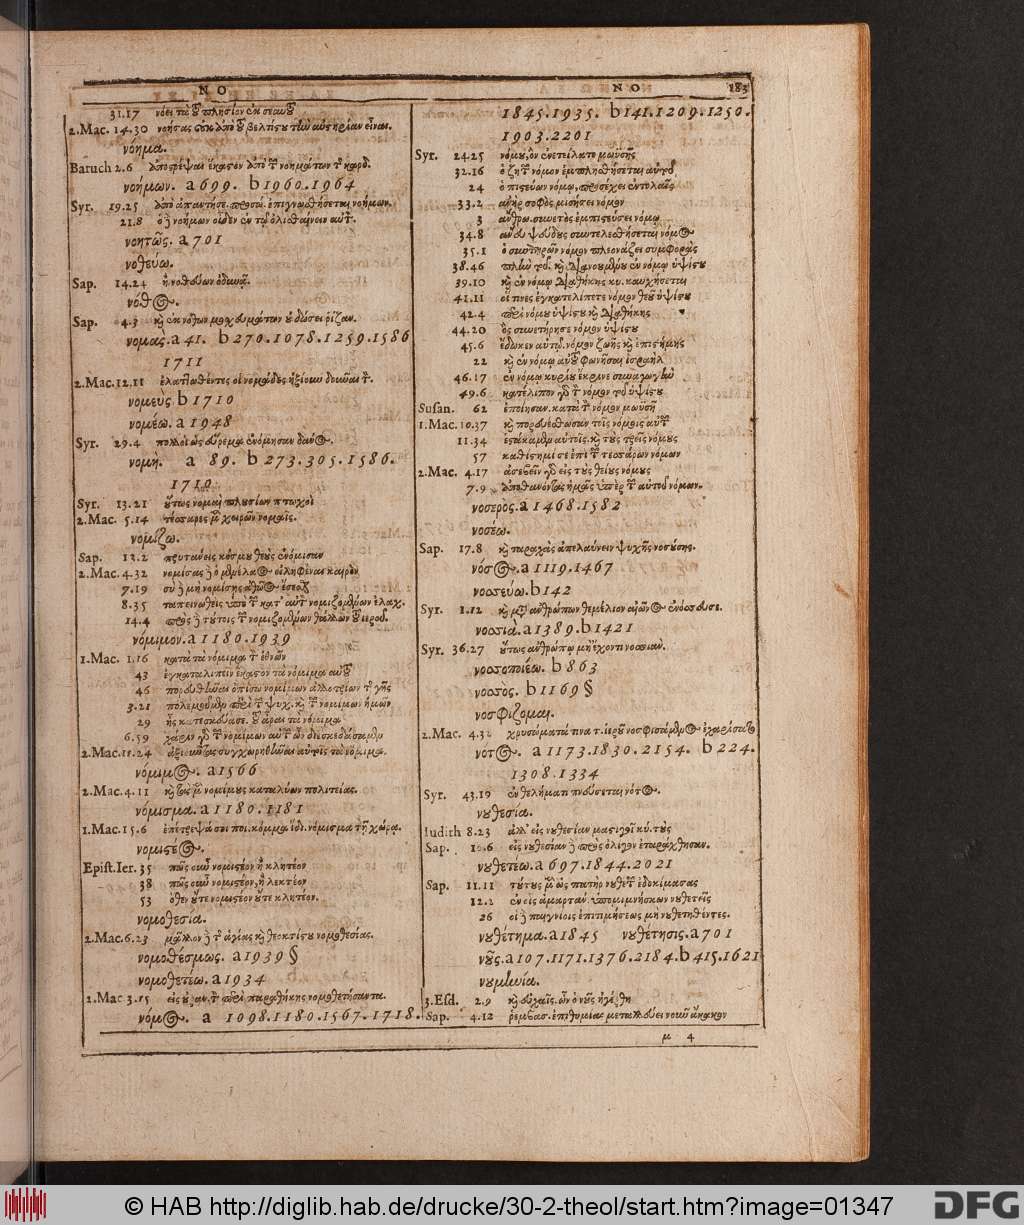 NO
31.17 νόει τὰ τοῦ πλησίον ἐκ σεαυτοῦ
2.Mac. 14.30 νοήσας οὐκ ἀπὸ τοῦ βελτίστου τὴν αὐστηρίαν εἶναι.
νόημα.
Baruch 2.6 ἀποστρέψαι ἕκαστον ἀπὸ τῶν νοημάτων τ καρδ.
νοήμων. a 699. b 1960.1964
Syr. 19.25 ἀπὸ ἀπαντήσε. προσώ. ἐπιγνωσθήσεται νοήμων.
21.8 ὁ δὲ νοήμων οἶδεν ἐν τῷ ὀλισθαίνειν αὐτ.
νοητῶς. a 701
νοθεύω.
Sap. 14.24 ἢ νοθεύων ὀδυνᾷ.
νόθος.
Sap. 4.3 καὶ ἐκ νόθων μοσχευμάτων οὐ δώσει ῥίζαν.
νομαὶς. a 41. b 270.1078.1259.1586
1711
2.Mac. 12.11 ἐλαττωθέντες οἱ νομάδες ἠξίουν δοῦναι τ.
νομεὺς b 1710
νομέω. a 1948
Syr. 29.4 πολλοὶ ὡς εὕρεμα ἐνόμησαν δάνος.
νομὴ. a 89. b 273.305.1586.
1710
Syr. 13.21 οὕτως νομαὶ πλουσίων πτωχοὶ
2.Mac. 5.14 τέσσαρες μ χειρῶν νομαῖς.
νομίζω.
Sap. 13.2 πρυτάνεις κόσμου θεοὺς ἐνόμισαν
2.Mac. 4.32 νομίσας δὲ ὁ μενέλαος εἰληφέναι καιρὸν
7.19 σὺ δὲ μὴ νομίσῃς ἀθῶος ἔσεσθ
8.35 ταπεινωθεὶς ὑπὸ τῶν κατ' αὐτὸν νομιζομένων ἐλαχ.
14.4 πρὸς δὲ τούτοις τῶν νομιζομένων θαλλῶν τοῦ ἱεροῦ.
νόμιμον. a 1180.1939
1.Mac. 1.16 κατὰ τὰ νόμιμα τῶν ἐθνῶν
43 ἐγκαταλιπεῖν ἕκαστον τὰ νόμιμα αὐτοῦ
46 πορευθῆναι ὀπίσω νομίμων ἀλλοτρίων τ γῆς
3.21 πολεμοῦμεν περὶ τῶν ψυχ. καὶ τῶν νομίμων ἡμῶν
29 ἧς κατεσκεύασε. τοῦ ἆραι τὰ νόμιμα
6.59 χάριν γὰρ τῶν νομίμων αὐτῶν ὧν διεσκεδάσαμεν
2.Mac. 11.24 ἀξιοῦντας συγχωρηθῆναι αὐτοῖς τὰ νόμιμα.
νόμιμος. a 1566
2.Mac. 4.11 καὶ τὰς μ νομίμους καταλύων πολιτείας.
νόμισμα. a 1180.1181
1.Mac. 15.6 ἐπέτρεψά σοι ποι. κόμμα ἴδι. νόμισμα τῇ χώρᾳ.
νομιστέος.
Epist. Ier. 35 πῶς οὖν νομιστέον ἢ κλητέον
38 πῶς οὖν νομιστέον, ἢ λεκτέον
53 ὅθεν οὔτε νομιστέον οὔτε κλητέον.
νομοθεσία.
2.Mac. 6.23 μᾶλλον δὲ τ ἁγίας καὶ θεοκτίστου νομοθεσίας.
νομοθέσμως. a 1939 §
νομοθετέω. a 1934
2.Mac 3.15 εἰς οὐραν. τὸν περὶ παραθήκης νομοθετήσαντα.
νόμος. a 1098.1180.1567.1718.
NO 183
1845.1935. b 141.1209.1250.
1903.2201
Syr. 24.25 νόμου, ὃν ἐνετείλατο μωϋσῆς
32.16 ὁ ζητῶν νόμον ἐμπλησθήσεται αὐτοῦ
24 ὁ πιστεύων νόμῳ, προσέχει ἐντολαῖς
33.2 ἀνὴρ σοφὸς μισήσει νόμον
3 ἄνθρω. συνετὸς ἐμπιστεύσει νόμῳ
34.8 ἄνευ ψεύδους συντελεσθήσεται νόμος
35.1 ὁ συντηρῶν νόμον πλεονάζει συμφορὰς
38.46 πλὴν τοῦ. καὶ διανοουμένου ἐν νόμῳ ὑψίστου
39.10 καὶ ἐν νόμῳ διαθήκης κυ. καυχήσεται
41.11 οἵτινες ἐγκατελίπετε νόμον θεοῦ ὑψίστου
42.4 περὶ νόμου ὑψίστου καὶ διαθήκης
44.20 ὃς συνετήρησε νόμον ὑψίστου
45.6 ἔδωκεν αὐτῷ. νόμον ζωῆς καὶ ἐπιστήμης
22 καὶ ἐν νόμῳ αὐτοῦ φωνῆσαι ἰσραὴλ
46.17 ἐν νόμῳ κυρίου ἔκρινε συναγωγὴν
49.6 κατέλιπον γὰρ τὸν νόμον τοῦ ὑψίστου
Susan. 62 ἐποίησαν. κατὰ τὸν νόμον μωϋσῆ
1.Mac. 10.37 καὶ πορευέσθωσαν τοῖς νόμοις αὐτῶν
11.34 ἑστάκαμεν αὐτοῖς. καὶ τοὺς τρεῖς νόμους
57 καθίστημί σε ἐπὶ τῶν τεσσάρων νόμων
2.Mac. 4.17 ἀσεβεῖν γὰρ εἰς τοὺς θείους νόμους
7.9 ἀποθανόντας ἡμᾶς ὑπὲρ τῶν αὐτοῦ νόμων.
νοσερος. a 1468.1582
νοσέω.
Sap. 17.8 καὶ ταραχὰς ἀπελαύνειν ψυχῆς νοσούσης.
νόσος. a 1119.1467
νοσσεύω. b 142
Syr. 1.12 καὶ μετὰ ἀνθρώπων θεμέλιον αἰῶνος ἐνόσσευσε.
νοσσιά. a 1389. b 1421
Syr. 36.27 οὕτως ἀνθρώπῳ μὴ ἔχοντι νοσσιάν.
νοσσοποιέω. b 863
νοσσος. b 1169 §
νοσφίζομαι.
2.Mac. 4.32 χρυσώματά τινα τ. ἱεροῦ νοσφισάμενος ἐχαρίσατο
νότος. a 1173.1830.2154. b 224.
1308.1334
Syr. 43.19 ἐν θελήματι πνεύσεται νότος.
νουθεσία.
Iudith 8.23 ἀλλ' εἰς νουθεσίαν μαστιγοῖ κύ. τοὺς
Sap. 10.6 εἰς νουθεσίαν δὲ πρὸς ὀλίγον ἐταράχθησαν.
νουθετέω. a 697.1844.2021
Sap. 11.11 τούτους μ ὡς πατὴρ νουθετῶν ἐδοκίμασας
12.2 ἐν οἷς ἁμαρτάν. ὑπομιμνήσκων νουθετεῖς
26 οἱ δὲ παιγνίοις ἐπιτιμήσεως μὴ νουθετηθέντες.
νουθέτημα. a 1845 νουθέτησις. a 701
νοῦς. a 107.1171.1376.2184. b 415.1621
νουμηνία.
3.Esd. 2.9 καὶ εὐχαῖς. ὧν ὁ νοῦς ἠγέρθη
Sap. 4.12 ῥεμβασ. ἐπιθυμίας μεταλλεύει νοῦν ἄκακον
μ 4
© HAB http://diglib.hab.de/drucke/30-2-theol/start.htm?image=01347
DFG